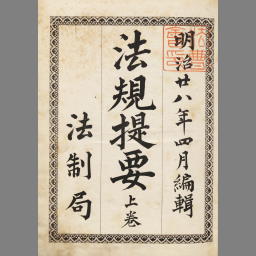 明治廿八年四月編輯
法規提要上卷
法制局